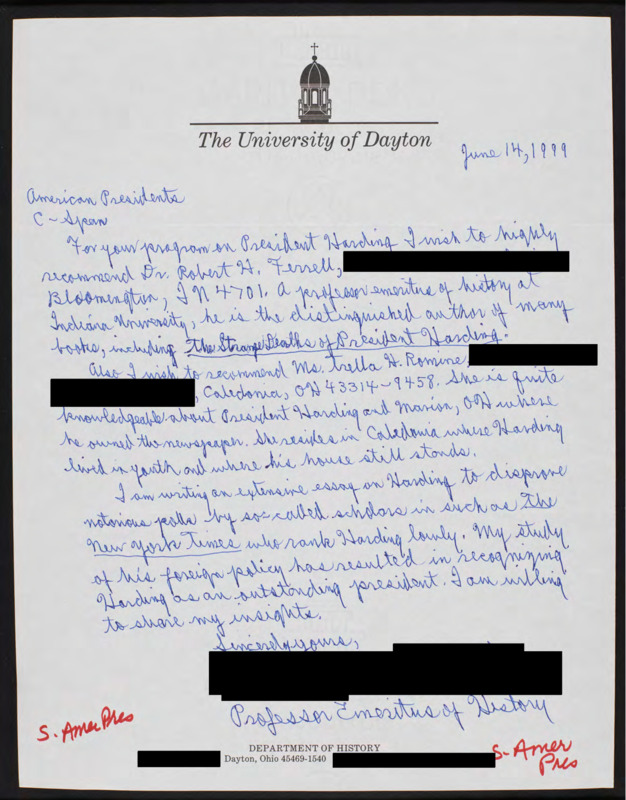 The University of Dayton
June 14, 1999
American Presidents
C-Span
For your program on President Harding I wish to highly
recommend Dr. Robert H. Ferrell,
Bloomington, IN 4701. A professor emeritus of history at
Indiana University, he is the distinguished author of many
books, including The Strange Deaths of President Harding.
Also I wish to recommend Ms. Trella H. Romine,
, Caledonia, OH 43314-9458. She is quite
knowledgeable about President Harding and Marion, OH where
he owned the newspaper. She resides in Caledonia where Harding
lived in youth and where his house still stands.
I am writing an extensive essay on Harding to disprove
notorious polls by so-called scholars in such as The
New York Times who rank Harding lowly. My study
of his foreign policy has resulted in recognizing
Harding as an outstanding president. I am willing
to share my insights.
Sincerely yours,
Professor Emeritus of History
S. Amer Pres
DEPARTMENT OF HISTORY
Dayton, Ohio 45469-1540
S-Amer
Pres